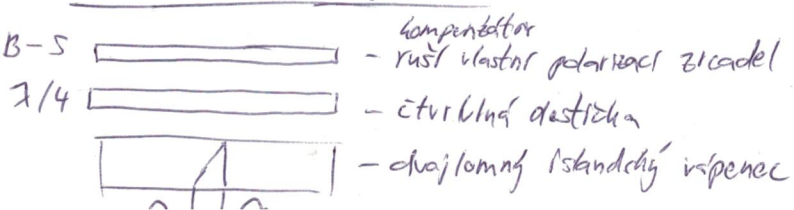 kompenzátor
B-S - ruší vlastní polarizaci zrcadel
λ/4 - čtvrtlná destička
- dvojlomný islandský vápenec